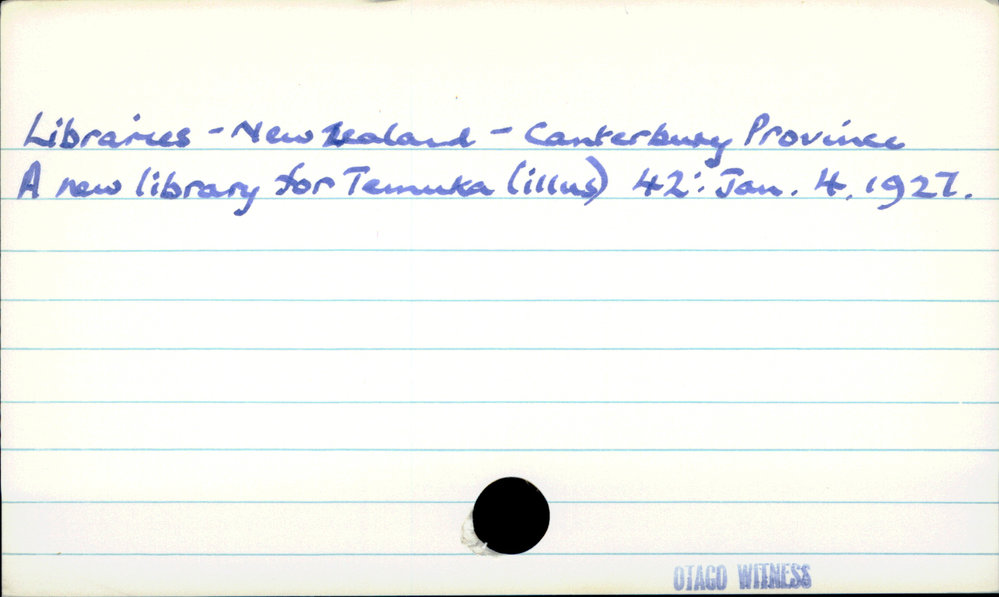 Libraries - New Zealand - Canterbury Province
A new library for Temuka (illus) 42: Jan. 4. 1927.
OTAGO WITNESS